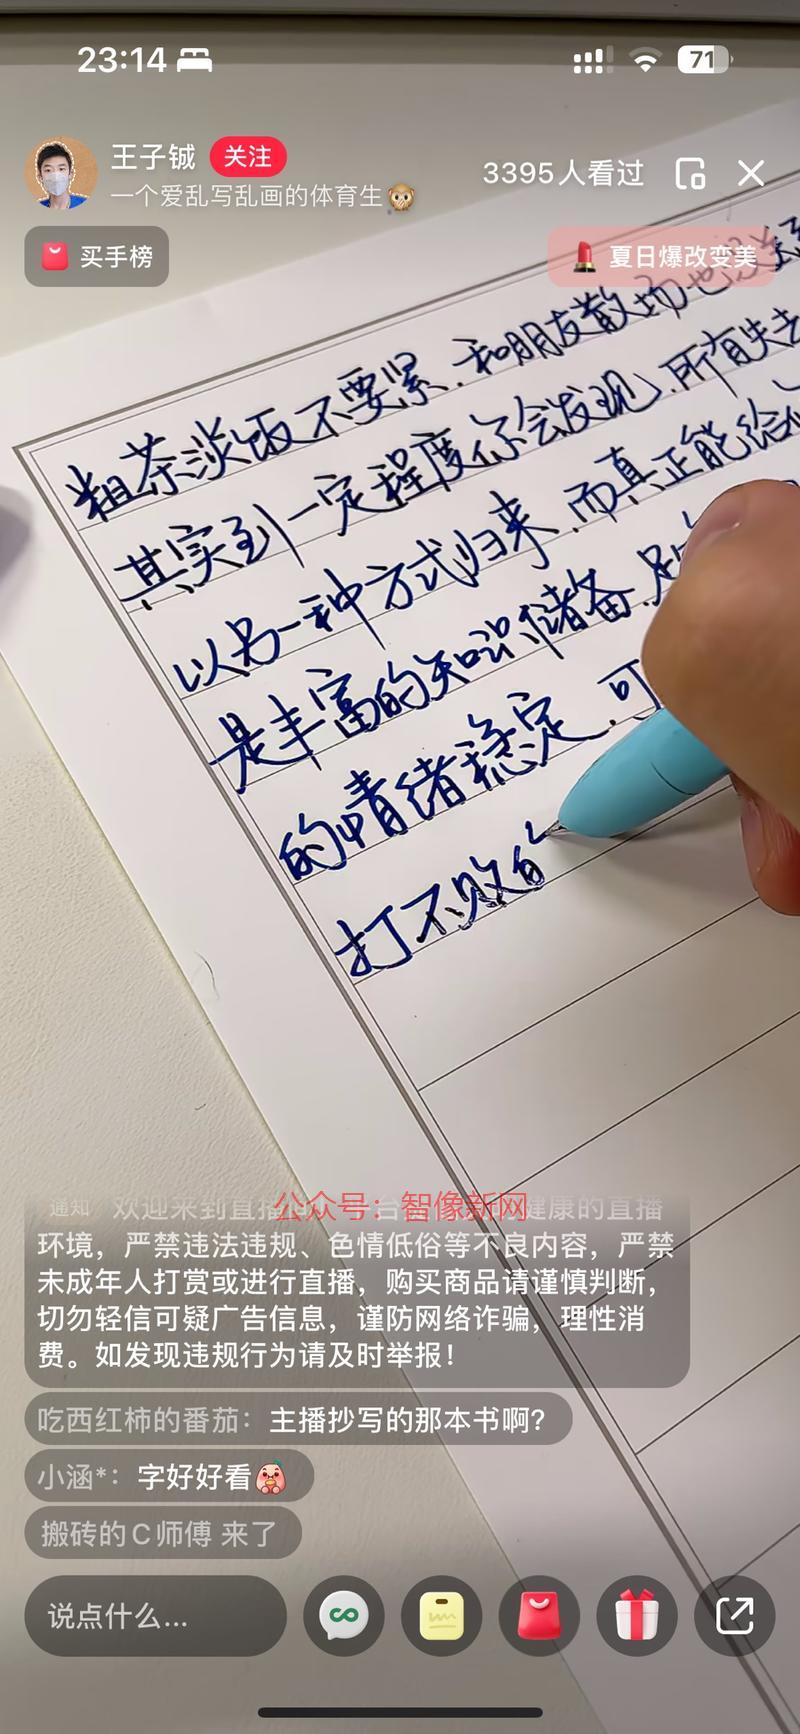 23:14
71
王子铖
关注
一个爱乱写乱画的体育生
3395人看过
买手榜
夏日爆改变美
粗茶淡饭不要紧.和朋友散场也没关系
其实到一定程度你会发现.所有失去
以另一种方式归来.而真正能给
是丰富的知识储备.足
的情绪稳定.可
打不败的
通知 欢迎来到直播 台 健康的直播
公众号：智像新网
环境，严禁违法违规、色情低俗等不良内容，严禁
未成年人打赏或进行直播，购买商品请谨慎判断，
切勿轻信可疑广告信息，谨防网络诈骗，理性消
费。如发现违规行为请及时举报！
吃西红柿的番茄：主播抄写的那本书啊？
小涵*：字好好看
搬砖的C师傅 来了
说点什么...